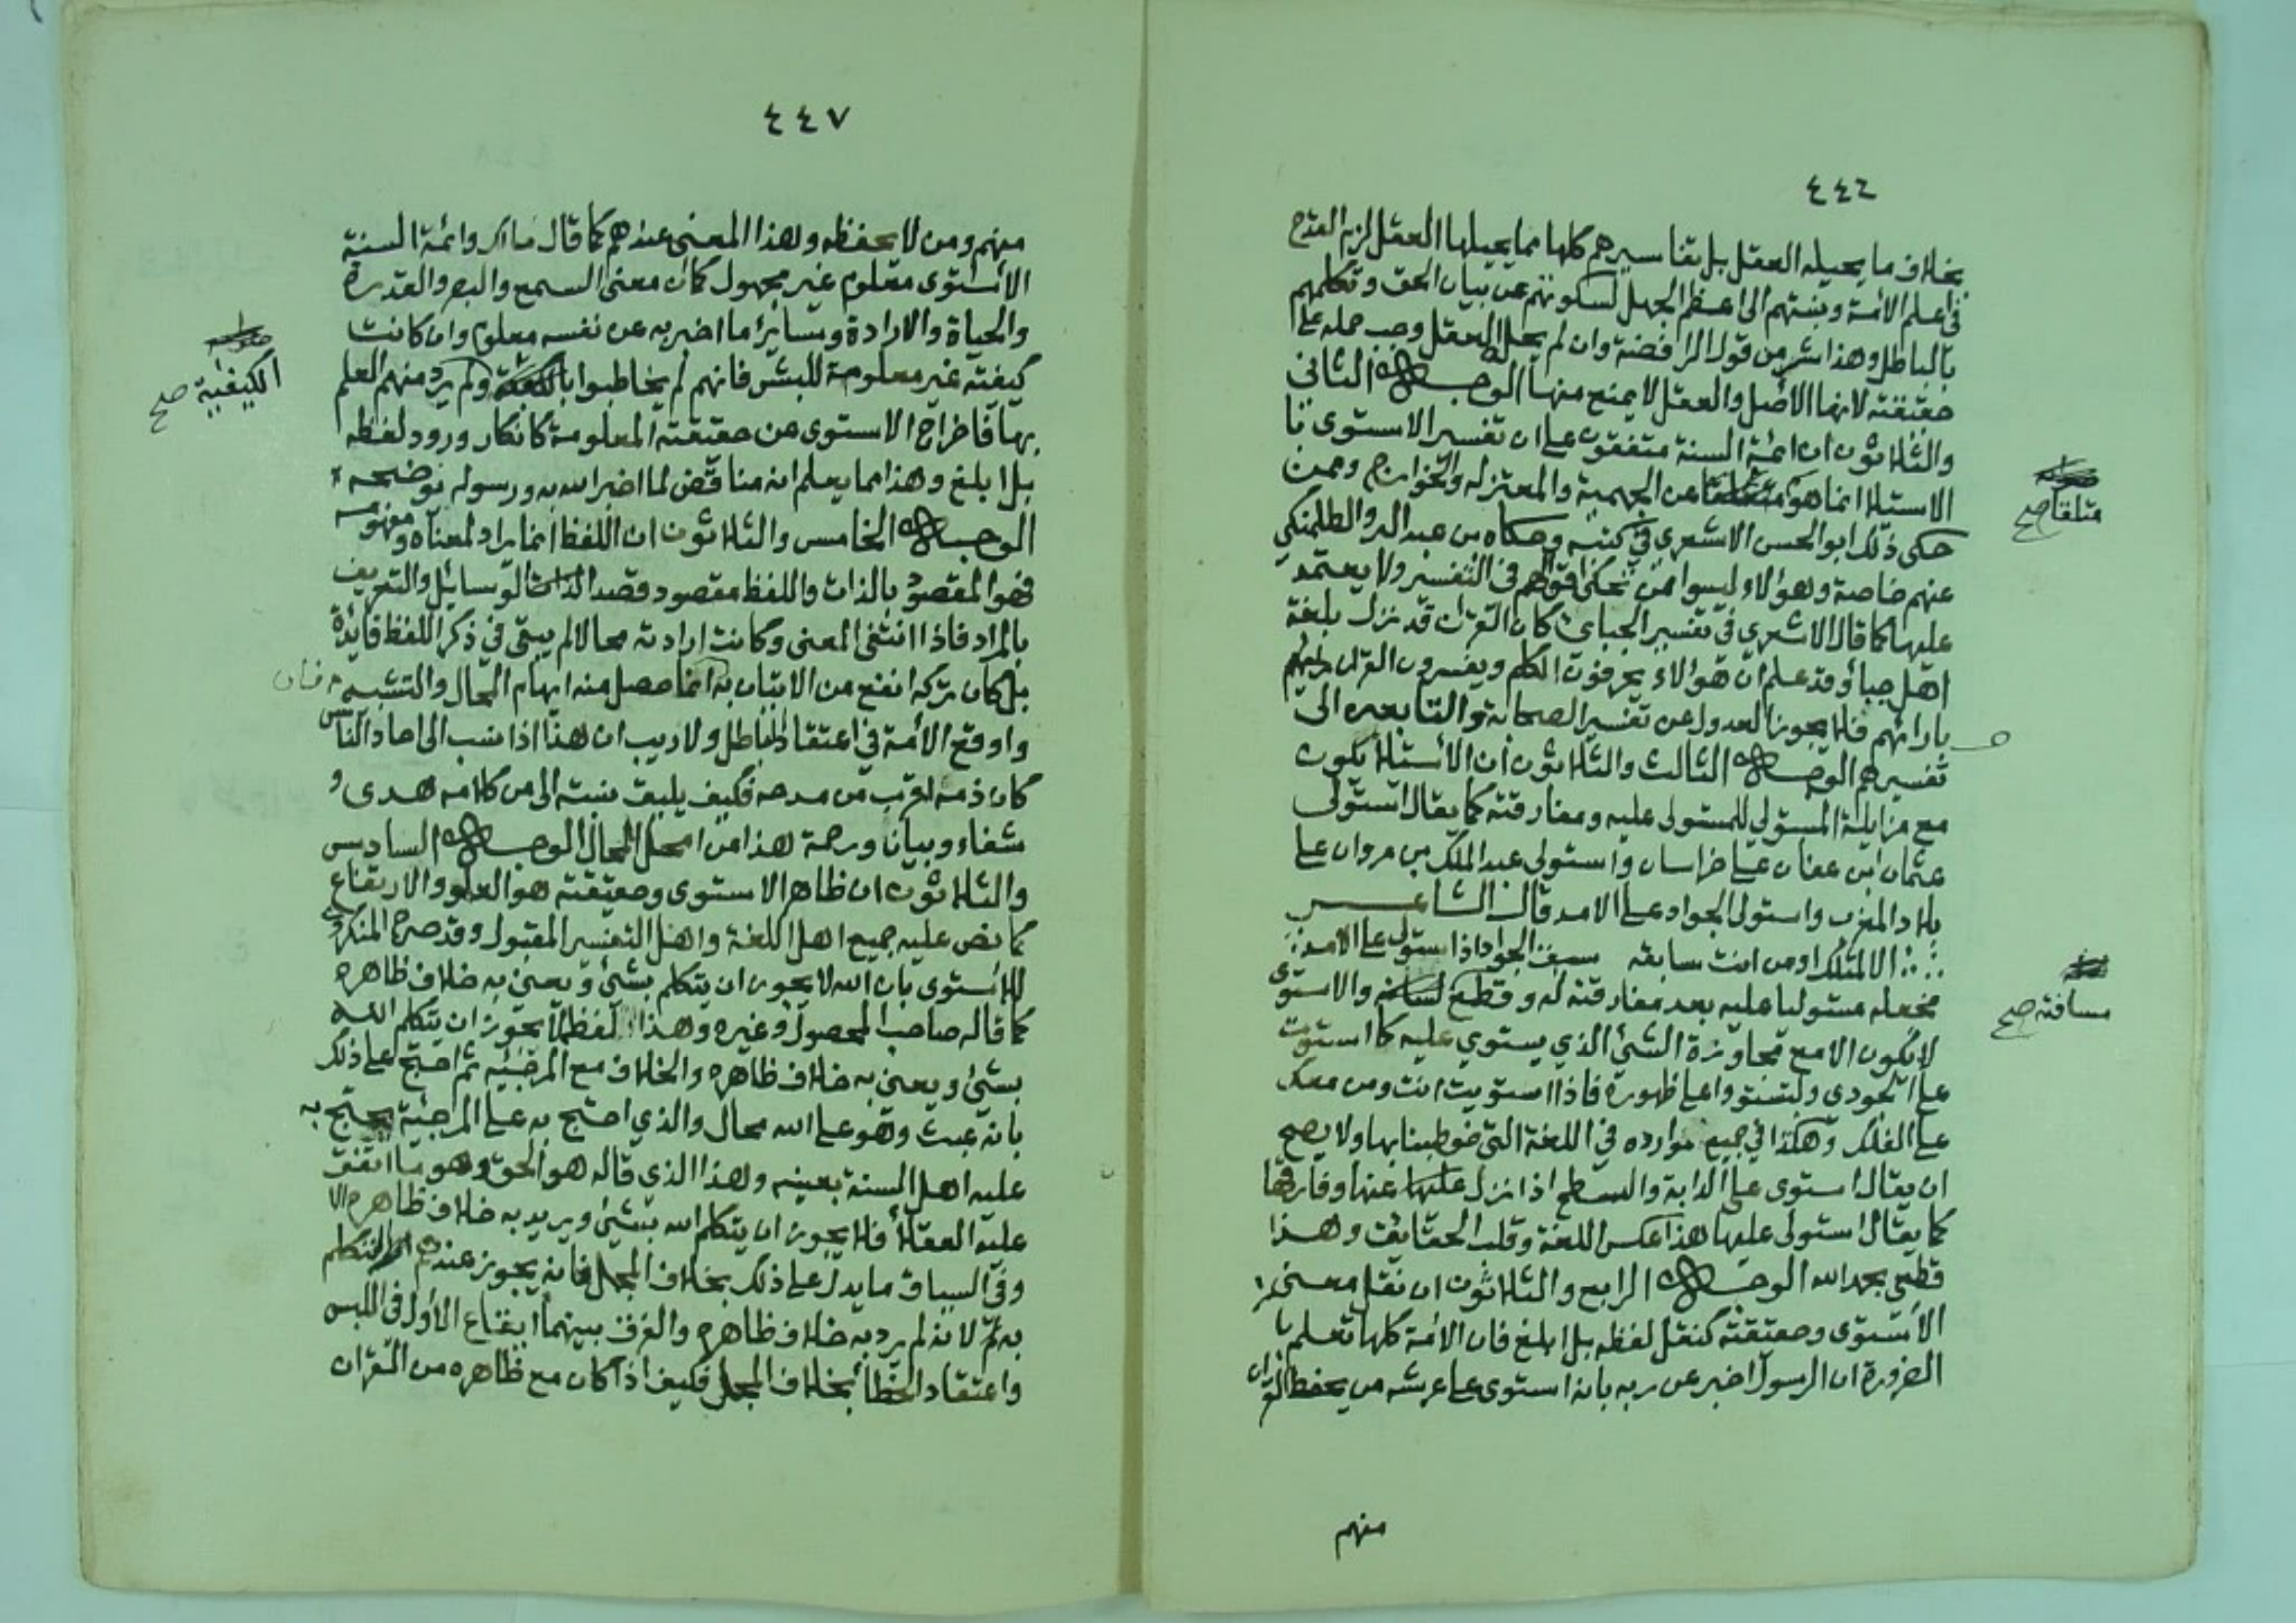 ٤٤٦
بخلاف ما يحيله العقل بل تفاسيرهم كلها مما يحيلها العقل لزم القدح
في علم الائمة ونسبتهم الى اعظم الجهل لسكوتهم عن بيان الحق وتكلمهم
بالباطل وهذا شر من قول الرافضة وان لم يحيله العقل وجب حمله على
حقيقته لانها الاصل والعقل لا يمنع منها الوجه الثاني
والثلاثون ان ائمة السنة متفقون على ان تفسير الاستوى با
الاستيلا انما هو عن الجهمية والمعتزله والخوارج وممن
متلقا صح
حكى ذلك ابو الحسن الاشعري في كتبه وحكاه بن عبد البر والطلمنكي
عنهم خاصة وهؤلاء ليسوا ممن تحكى اقوالهم في التفسير ولا يعتمد
عليها كما قال الاشعري في تفسير الجبائ كان القران قد نزل بلغة
اهل جبا وقد علم ان هؤالاء يحرفون الكلم ويفسرون القران برايهم
بارائهم فلا يجوز العدول عن تفسير الصحابة والتابعين الى
تفسيرهم الوجه الثالث والثلاثون ان الاستيلا يكون
مع مزايلة المستولي للمستولى عليه ومفارقته كما يقال استولى
عثمان ابن عفان على خراسان واستولى عبد الملك بن مروان على
بلاد المغرب واستولى الجواد على الامد قال الشاعر
الا لمثلك او من انت سابقه سبق الجواد اذا استولى على الامد
فجعله مستوليا عليه بعد مفارقته له وقطع والاستوى
مسافته صح
لا يكون الا مع مجاوزة الشئ الذي يستوي عليه كما استوت
على الجودي ولتستووا على ظهوره فاذا استويت انت ومن معك
على الفلك وهكذا في جميع موارده في اللغة التي خوطبنا بها ولا يصح
ان يقال استوى على الدابة والسطح اذا نزل عنها وفارقها
كما يقال استولى عليها هذا عكس اللغة وقلب الحقايق وهذا
قطعي بحمد الله الوجه الرابع والثلاثون ان نقل معنى
الاستوى وحقيقته كنقل لفظه بل ابلغ فان الائمة كلها تعلم با
الضرورة ان الرسول اخبر عن ربه بانه استوى على عرشه من يحفظ القران
منهم
٤٤٧
منهم ومن لا يحفظه وهذا المعنى عندهم كما قال مالك وائمة السنة
الاستوى معلوم غير مجهول كما ان معنى السمع والبصر والقدرة
والحياة والارادة وسائر ما اخبر به عن نفسه معلوم وان كانت
كيفيته غير معلومة للبشر فانهم لم يخاطبوا ولم يرد منهم العلم
الكيفية صح
بها فاخراج الاستوى عن حقيقته المعلومة كانكار ورود لفظه
بل ابلغ وهذا مما يعلم انه مناقض لما اخبر الله به ورسوله نوضحه
الوجه الخامس والثلاثون ان اللفظ انما يراد لمعناه ومفهومه
فهو المقصود بالذات واللفظ مقصود قصد الوسائل والتعريف
بالمراد فاذا انتفى المعنى وكانت ارادته محالا لم يبقى في ذكر اللفظ فايدة
بل كان تركه انفع من الاتيان به انما حصل منه ايهام المحال والتشبيه
واوقع الائمة في اعتقاد الباطل ولا ريب ان هذا اذا نسب الى احاد الناس
كان ذمه اقرب من مدحه فكيف يليق نسبته الى من كلامه هدى و
شفاء وبيان ورحمة هذا من امحل المحال الوجه السادس
والثلاثون ان ظاهر الاستوى وحقيقته هو العلو والارتفاع
كما نص عليه جميع اهل اللغة واهل التفسير المقبول وقد صرح المنكرون
للاستوى بان الله لا يجوز ان يتكلم بشئ ويعني به خلاف ظاهره
كما قاله صاحب المحصول وغيره وهذا لفظه لا يجوز ان يتكلم الله
بشئ ويعني به خلاف ظاهره والخلاف مع المرجئيه ثم احتج على ذلك
بانه عبث وهو على الله محال والذي احتج به على المرجئة يحتج به
عليه اهل السنة بعينه وهذا الذي قاله هو الحق وهو ما اتفق
عليه العقلا فلا يجوز ان يتكلم الله بشئ ويريد به خلاف ظاهره الا
وفي السياق ما يدل على ذلك بخلاف المجمل فانه يجوز عندهم التكلم
به لانه لم يرد به خلاف ظاهره والفرق بينهما ايقاع الاول في اللبس
واعتقاد الخطا بخلاف المجمل فكيف اذا كان مع ظاهره من القران